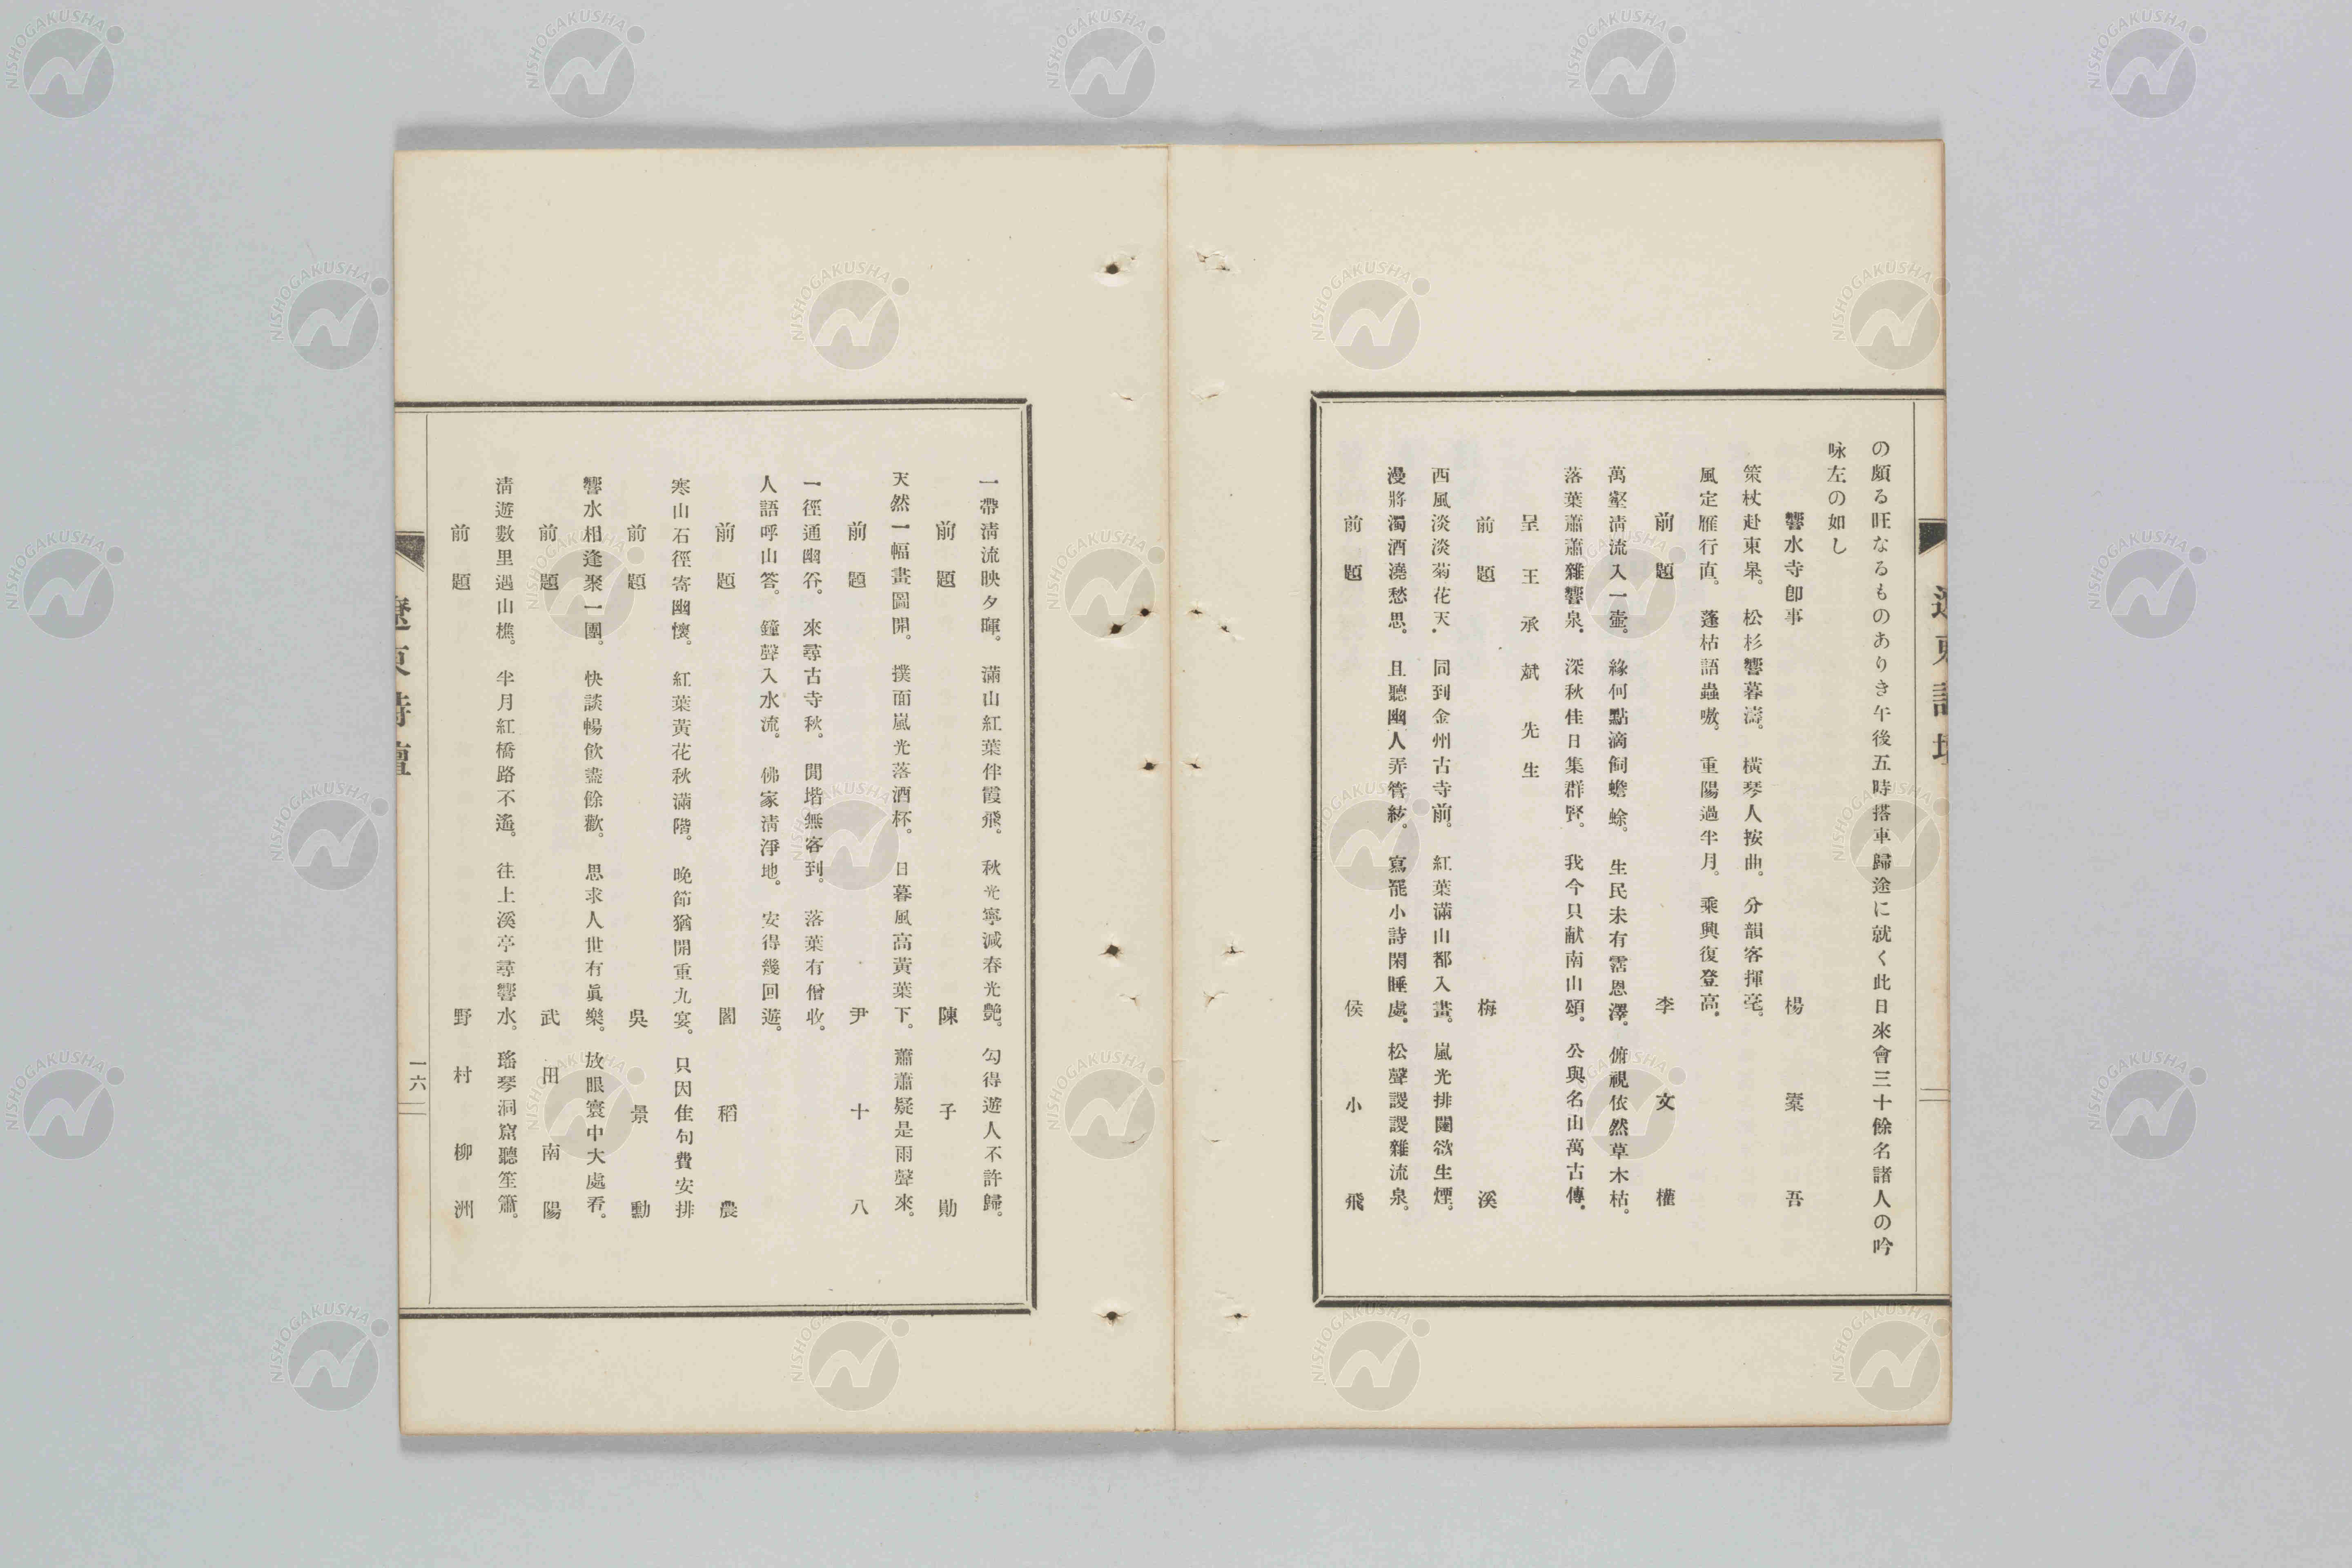 の頗る旺なるものありき午後五時搭車歸途に就く此日來會三十餘名諸人の吟
咏左の如し
響水寺卽事 楊槖吾
策杖赴東皋。松杉響暮濤。橫琴人按曲。分韻客揮亳。
風定雁行直。蓬枯語蟲嗷。重陽過半月。乘興復登高。
前題 李文權
萬壑淸流入一壷。緣何點滴飼蟾蜍。生民未有霑恩澤。俯視依然草木枯。
落葉蕭蕭雜響泉。深秋佳日集群賢。我今只献南山頌。公與名山萬古傳。
呈王承斌先生
前題 梅溪
西風淡淡菊花天。同到金州古寺前。紅葉滿山都入畫。嵐光排闥欲生煙。
漫將濁酒澆愁思。且聽幽人弄管絃。寫罷小詩閑睡處。松聲謖謖雜流泉。
前題 侯小飛
一帶淸流映夕暉。滿山紅葉伴霞飛。秋光寧減春光艶。勾得遊人不許歸。
前題 陳子勛
天然一幅畫圖開。撲面嵐光落酒杯。日暮風高黃葉下。蕭蕭疑是雨聲來。
前題 尹十八
一徑通幽谷。來尋古寺秋。閒堦無客到。落葉有僧收。
人語呼山答。鐘聲入水流。佛家淸淨地。安得幾回遊。
前題 閻稻農
寒山石徑寄幽懷。紅葉黃花秋滿階。晚節猶開重九宴。只因隹句費安排
前題 吳景勳
響水相逢聚一團。快談暢飮盡餘歡。思求人世有眞樂。放眼寰中大處看。
前題 武田南陽
淸遊數里遇山樵。半月紅橋路不遙。往上溪亭尋響水。瑤琴洞窟聽笙簫。
前題 野村柳洲
遼東詩壇
一六